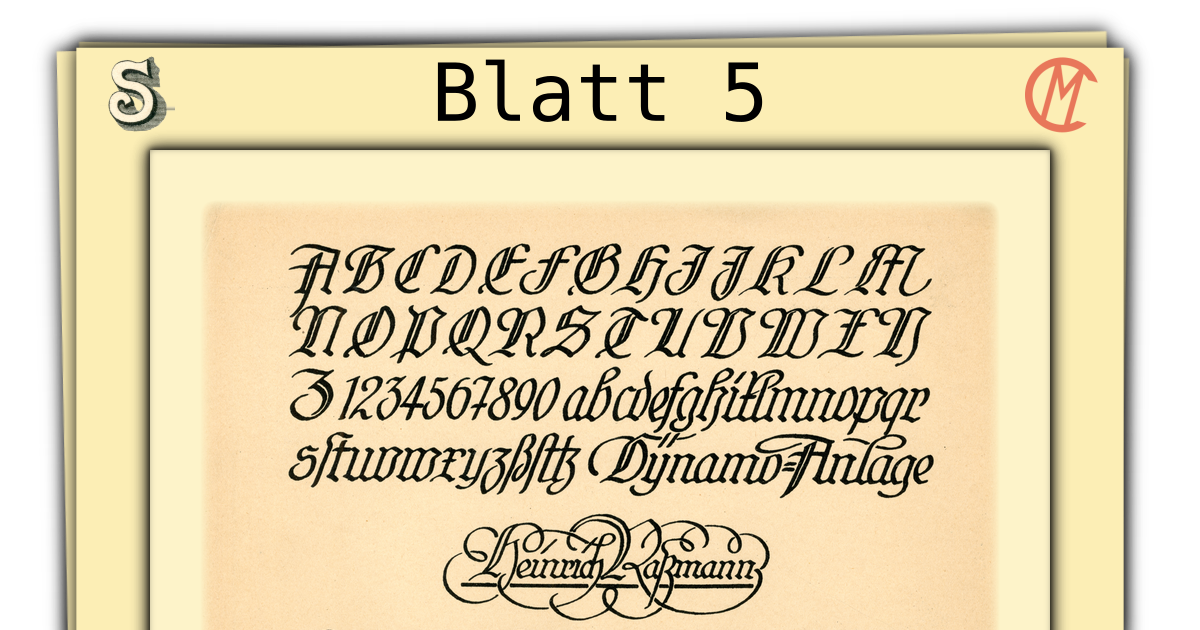 S
Blatt 5
CM
ABCDEFGHIJKLM
NOPQRSTUVWXY
Z 1234567890 abcdefghiklmnopqr
sſtuvwxyzßſttz Dynamo=Anlage
Heinrich Raßmann